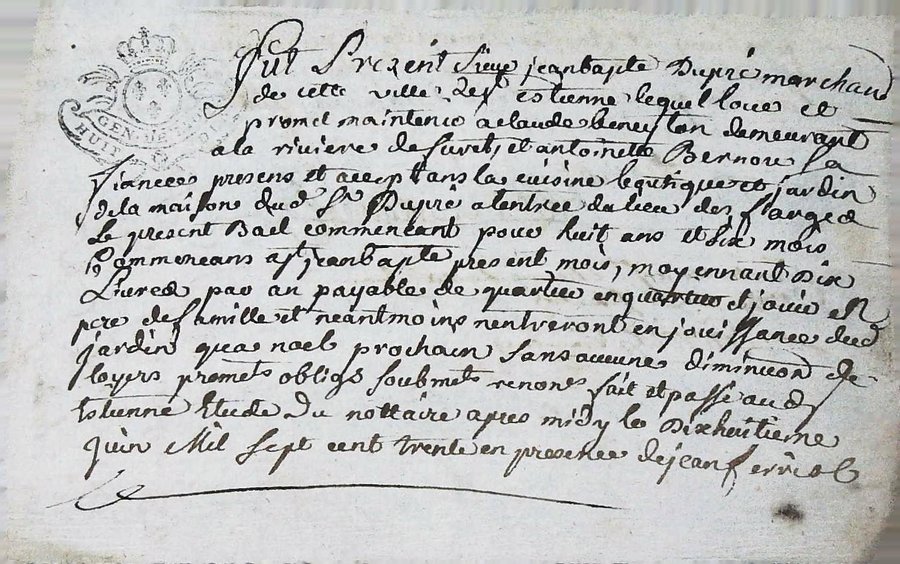 GEN. DE
HUIT D
Fut Present Sieur jeanbapte Dupré marchand
de cette ville de St Estienne lequel loue et
promet maintenir a claude beneyton demeurant
a la riviere de furet, et antoinette Bernou sa
fiancée presens et acceptans la cuisine boutique et jardin
de la maison dud Sr Dupré a lentrée du lieu des farges
Le present Bail commencant pour huit ans et six mois
Commencans a St jeanbapte present mois, moyennant Dix
Livres par an payable de quartier en quartier et jouir en
pere de famille et neantmoins nentreront en jouissance dud
jardin qua noel prochain sans aucune diminuon de
loyers promets obligs soubmets renons fait et passé aud St
Estienne Etude Du nottaire apres midy le Dixhuitieme
Juin Mil Sept cent trente en presence de jean ferriol